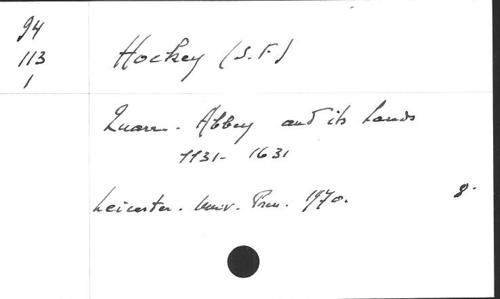 94
113
1
Hockey (S.F.)
Quarr. Abbey and its lands
1131- 1631
Leicester. Univ. Press. 1970. 8.